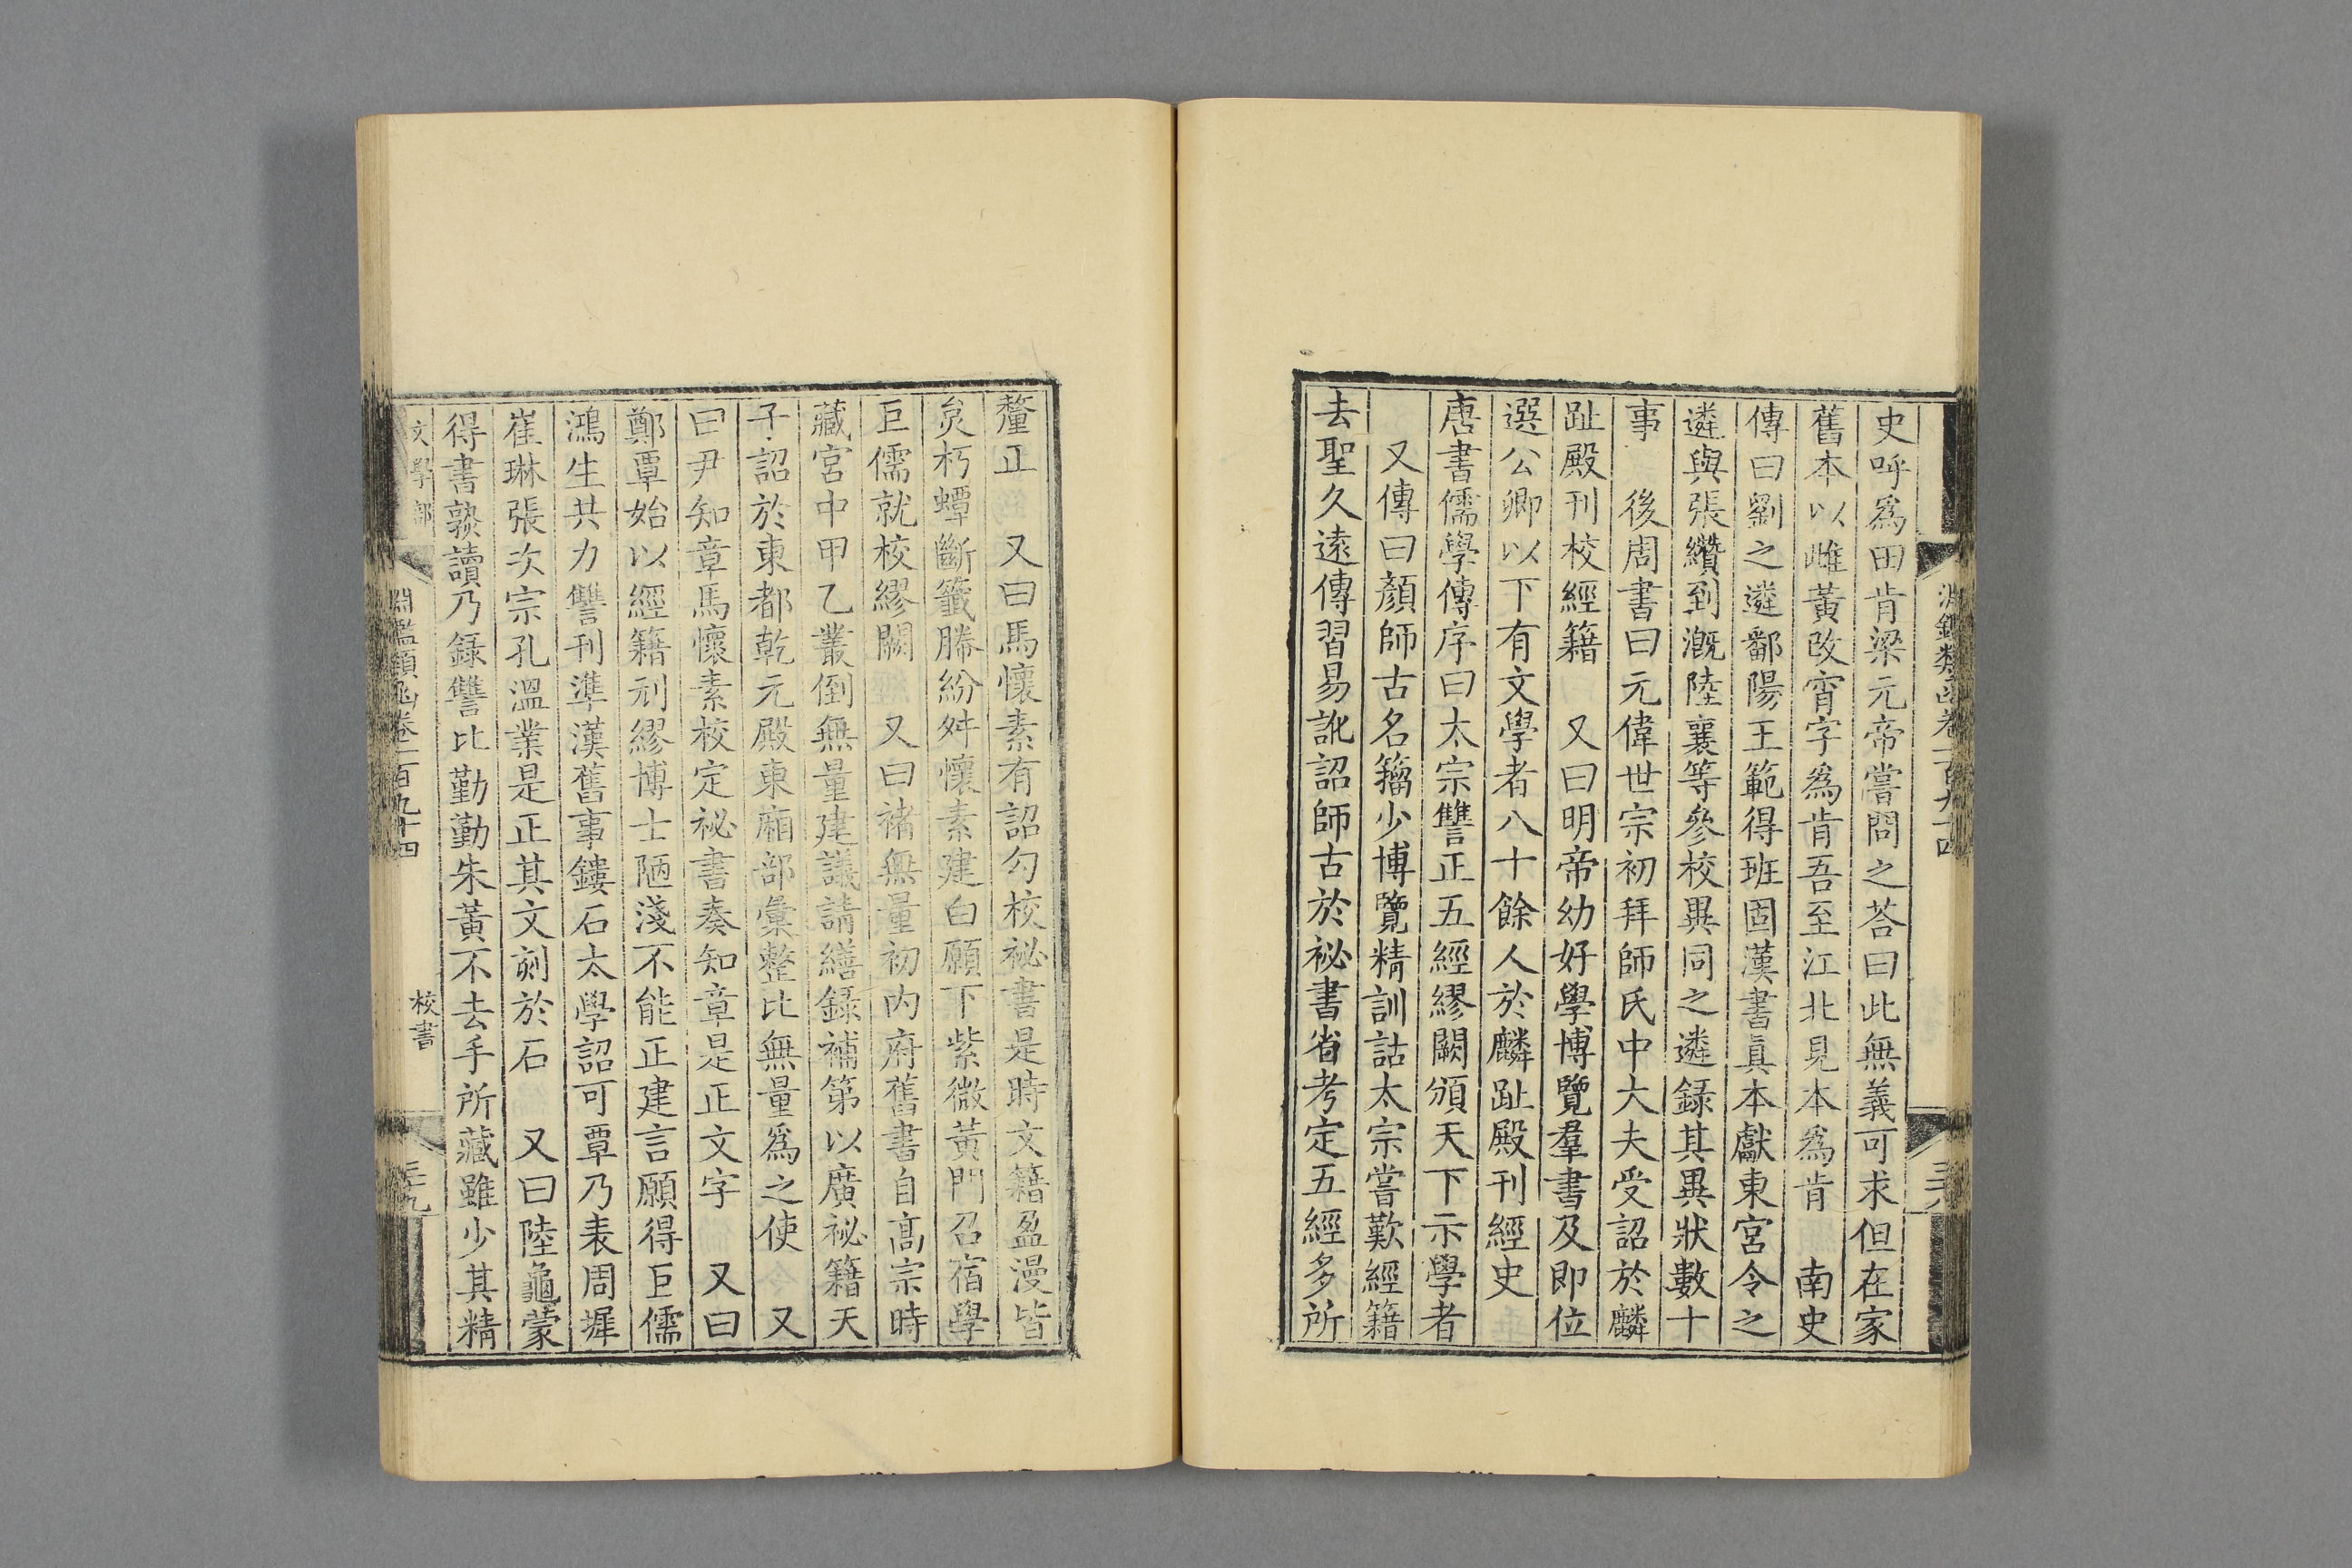 淵鑑類函卷一百九十四
史呼爲田肯梁元帝嘗問之荅曰此無義可求但在家
舊本以雌黃改宵字爲肯吾至江北見本爲肯 南史
傳曰劉之遴鄱陽王範得班固漢書眞本獻東宮令之
遴與張纘到漑陸襄等參校異同之遴錄其異狀數十
事 後周書曰元偉世宗初拜師氏中大夫受詔於麟
趾殿刊校經籍 又曰明帝幼好學博覽羣書及即位
選公卿以下有文學者八十餘人於麟趾殿刊經史
唐書儒學傳序曰太宗讐正五經繆闕頒天下示學者
又傳曰顏師古名籀少博覽精訓詁太宗嘗歎經籍
去聖久遠傳習易訛詔師古於祕書省考定五經多所
釐正 又曰馬懷素有詔勾校祕書是時文籍盈漫皆
炱朽蟫斷籤勝紛舛懷素建白願下紫微黃門召宿學
巨儒就校繆闕 又曰褚無量初內府舊書自高宗時
藏宮中甲乙叢倒無量建議請繕錄補第以廣祕籍天
子詔於東都乾元殿東廂部彙整比無量爲之使 又
曰尹知章馬懷素校定祕書奏知章是正文字 又曰
鄭覃始以經籍刓繆博士陋淺不能正建言願得巨儒
鴻生共力讐刊準漢舊事鏤石太學詔可覃乃表周墀
崔琳張次宗孔溫業是正其文刻於石 又曰陸龜蒙
得書熟讀乃錄讐比勤勤朱黃不去手所藏雖少其精
文學部 淵鑑類函卷一百九十四 校書 三十九